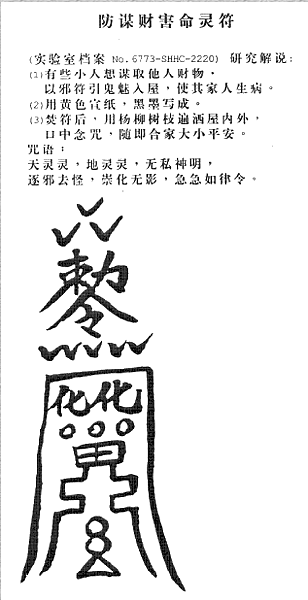 防谋财害命灵符
(实验室档案 No.6773-SHHC-2220) 研究解说:
(1)有些小人想谋取他人财物,
以邪符引鬼魅入屋,使其家人生病。
(2)用黄色宣纸,黑墨写成。
(3)焚符后,用杨柳树枝遍洒屋内外,
口中念咒,随即合家大小平安。
咒语:
天灵灵,地灵灵,无私神明,
逐邪去怪,崇化无影,急急如律令。
敕令
化化